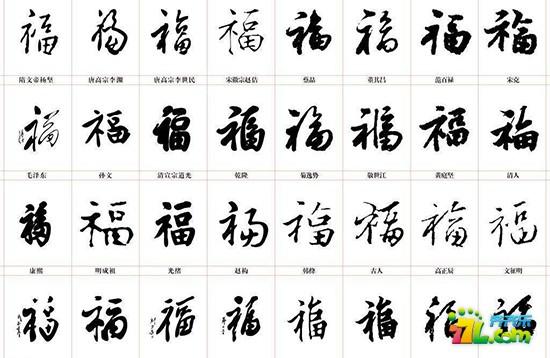 福 福 福 福 福 福 福 福
隋文帝杨坚 唐高宗李渊 唐高宗李世民 宋徽宗赵佶 蔡品 董其昌 范百禄 宋克
福 福 福 福 福 福 福 福
毛泽东 孙文 清宣宗道光 乾隆 敬世江 黄庭坚 清人
福 福 福 福 福 福 福 福
康熙 明成祖 光绪 赵构 韩绛 古人 高正辰 文征明
福 福 福 福 福 福 福 福
7L.com